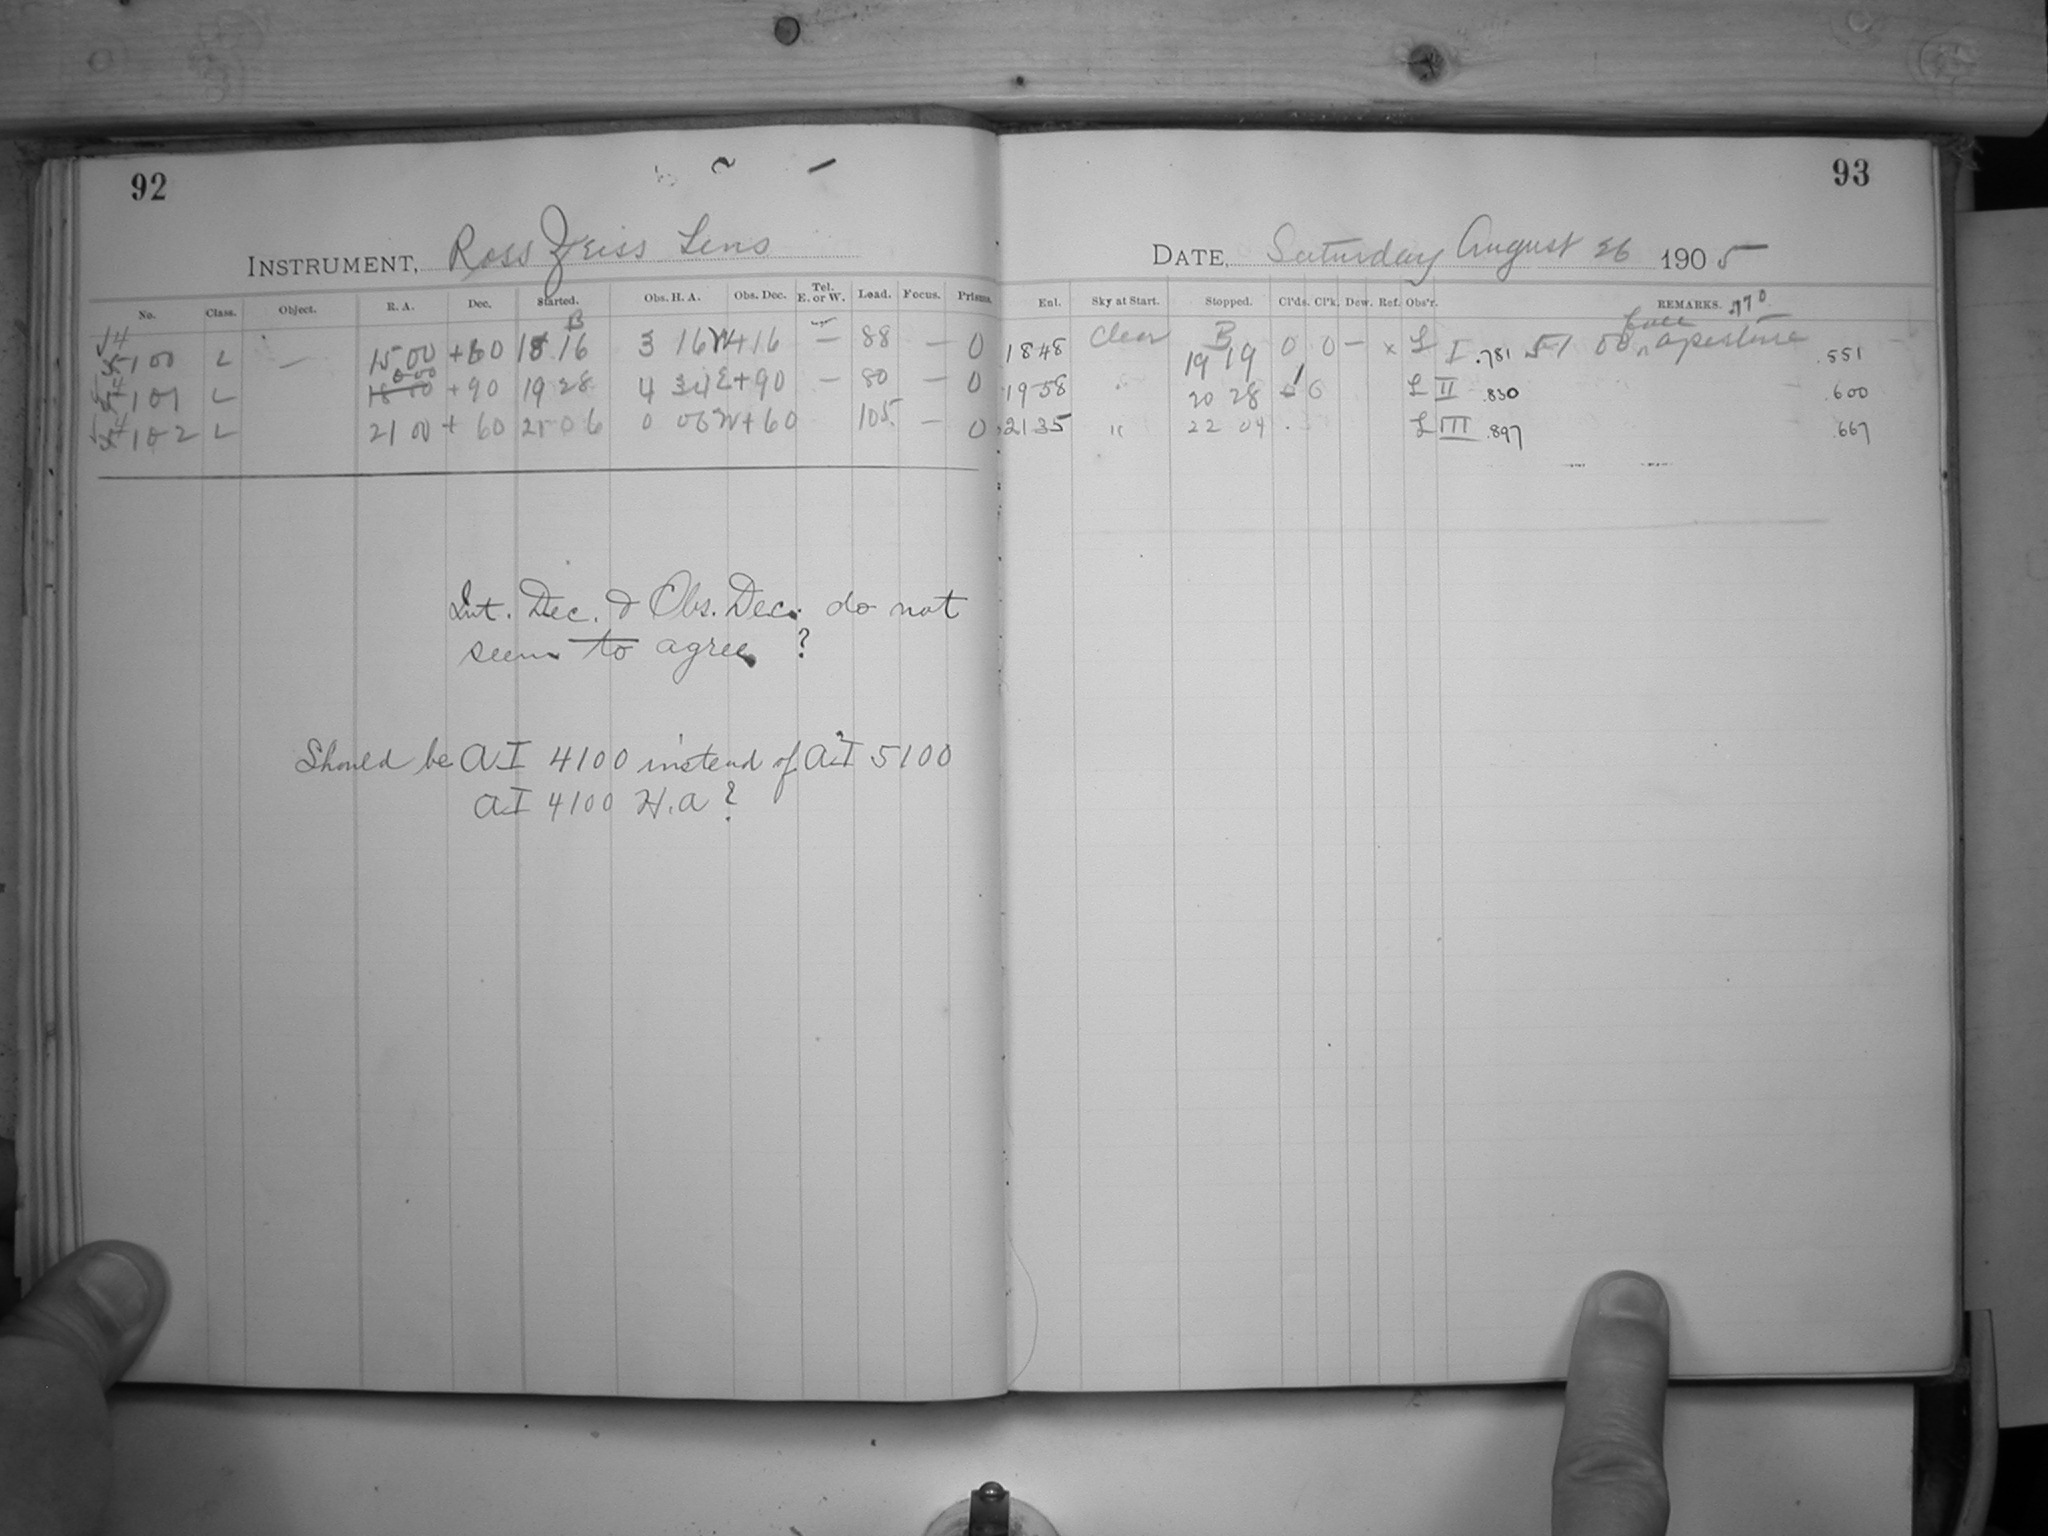 92
INSTRUMENT, Ross Zeiss Lens
No. Class. Object. R. A. Dec. Started. Obs. H. A. Obs. Dec. Tel. E. or W. Load. Focus. Prisms.
100 L — 15 00 +60 18 16 3 16 W +16 — 88 — 0
101 L 18 00 +90 19 28 4 34 E +90 — 80 — 0
102 L 21 00 +60 21 06 0 06 W +60 105 — 0
Int. Dec. & Obs. Dec. do not
seem to agree ?
Should be AI 4100 instead of AI 5100
AI 4100 H.A ?
93
DATE, Saturday August 26 1905
Enl. Sky at Start. Stopped. Cl'ds. Cl'k. Dew. Ref. Obs'r. REMARKS. .770
full
18 48 Clear 19 19 0 0 — x L I .781 51 00 aperture .551
19 58 " 20 28 0 L II .830 .600
21 35 " 22 04 L III .897 .667